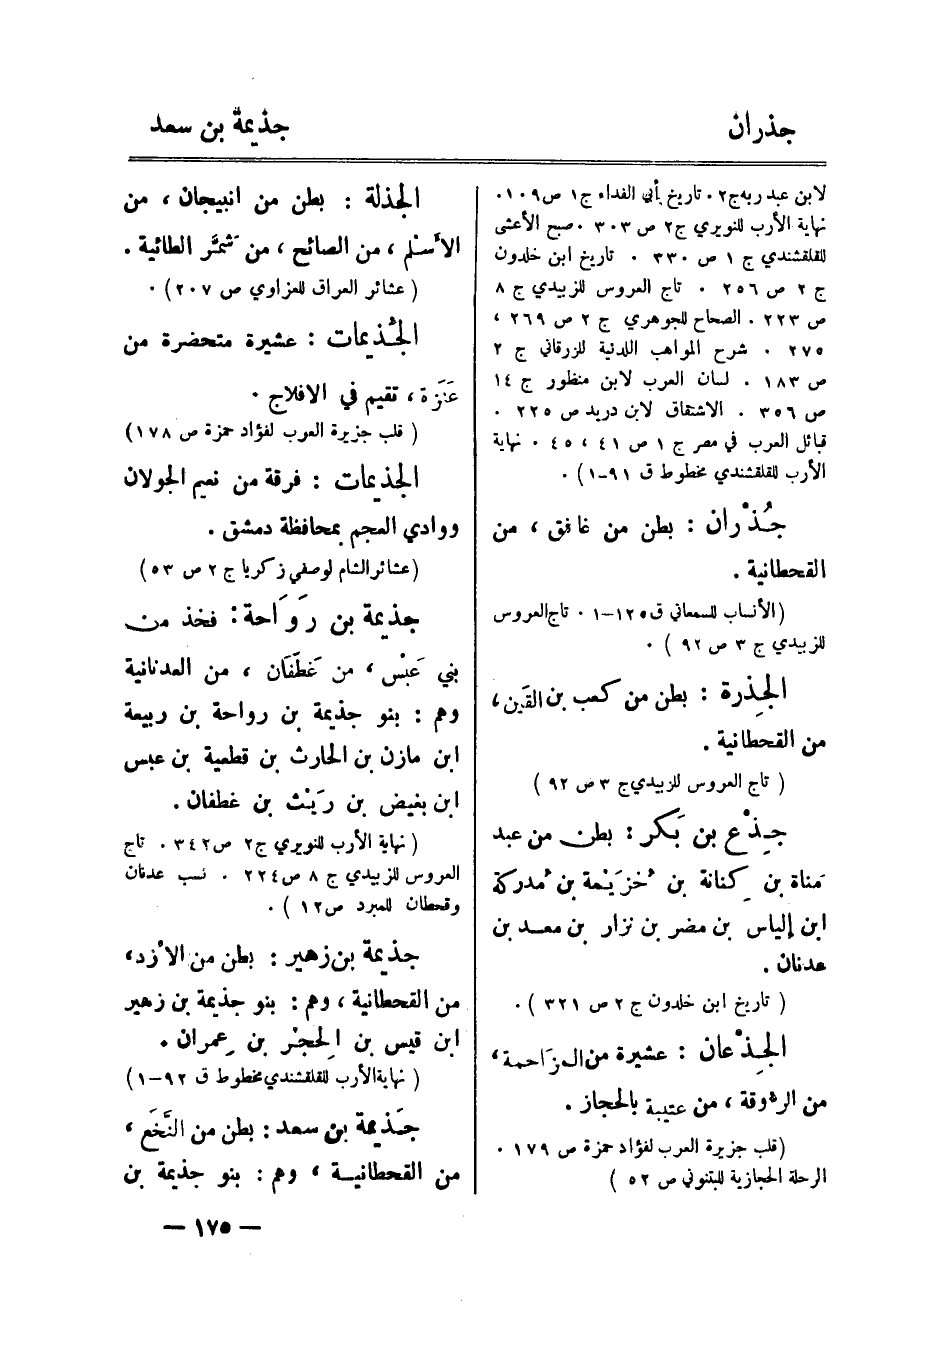 جذران
جذيمة بن سعد
لابن عبد ربه ج٢ . تاريخ أبي الفداء ج١ ص١٠٩ .
نهاية الأرب للنويري ج٢ ص ٣٠٣ . صبح الأعشى
للقلقشندي ج ١ ص ٣٣٠ . تاريخ ابن خلدون
ج ٢ ص ٢٥٦ . تاج العروس للزبيدي ج ٨
ص ٢٢٣ . الصحاح للجوهري ج ٢ ص ٢٦٩ ،
٢٧٥ . شرح المواهب اللدنية للزرقاني ج ٢
ص ١٨٣ . لسان العرب لابن منظور ج ١٤
ص ٣٥٦ . الاشتقاق لابن دريد ص ٢٢٥ .
قبائل العرب في مصر ج ١ ص ٤١ ، ٤٥ . نهاية
الأرب للقلقشندي مخطوط ق ٩١-١) .
جُذْران : بطن من غافق ، من
القحطانية .
(الأنساب للسمعاني ق١٢٥-١ . تاج العروس
للزبيدي ج ٣ ص ٩٢ ) .
الجِذرة : بطن من كعب بن القَين ،
من القحطانية .
( تاج العروس للزبيدي ج ٣ ص ٩٢ )
جِذْع بن بَكر : بطن من عبد
مَناة بن كِنانة بن خُزَيْمة بن مُدركة
ابن إلياس بن مضر بن نزار بن معد بن
عدنان .
( تاريخ ابن خلدون ج ٢ ص ٣٢١ ) .
الجِذْعان : عشيرة من المزاحمة ،
من الرُوقة ، من عتيبة بالحجاز .
(قلب جزيرة العرب لفؤاد حمزة ص ١٧٩ .
الرحلة الحجازية للبتنوني ص ٥٢ )
الجذلة : بطن من انبيجان ، من
الأسْلم ، من الصائح ، من شَمَّر الطائية .
( عشائر العراق للعزاوي ص ٢٠٧ ) .
الجُذيمات : عشيرة متحضرة من
عَنَزَة ، تقيم في الافلاج .
( قلب جزيرة العرب لفؤاد حمزة ص ١٧٨ )
الجذيمات : فرقة من نعيم الجولان
ووادي العجم بمحافظة دمشق .
(عشائر الشام لوصفي زكريا ج ٢ ص ٥٣ )
جذيمة بن رَوَاحة : فخذ من
بني عَبْس ، من غَطَفَان ، من العدنانية
وهم : بنو جذيمة بن رواحة بن ربيعة
ابن مازن بن الحارث بن قطيعة بن عبس
ابن بغيض بن رَيْث بن غطفان .
( نهاية الأرب للنويري ج٢ ص٣٤٢ . تاج
العروس للزبيدي ج ٨ ص٢٢٤ . نسب عدنان
وقحطان للمبرد ص١٢ ) .
جذيمة بن زهير : بطن من الأزد ،
من القحطانية ، وهم : بنو جذيمة بن زهير
ابن قيس بن الحِجْر بن عِمران .
( نهاية الأرب للقلقشندي مخطوط ق ٩٢-١)
جَذيمة بن سعد : بطن من النَّخَع ،
من القحطانية ، وهم : بنو جذيمة بن
— ١٧٥ —